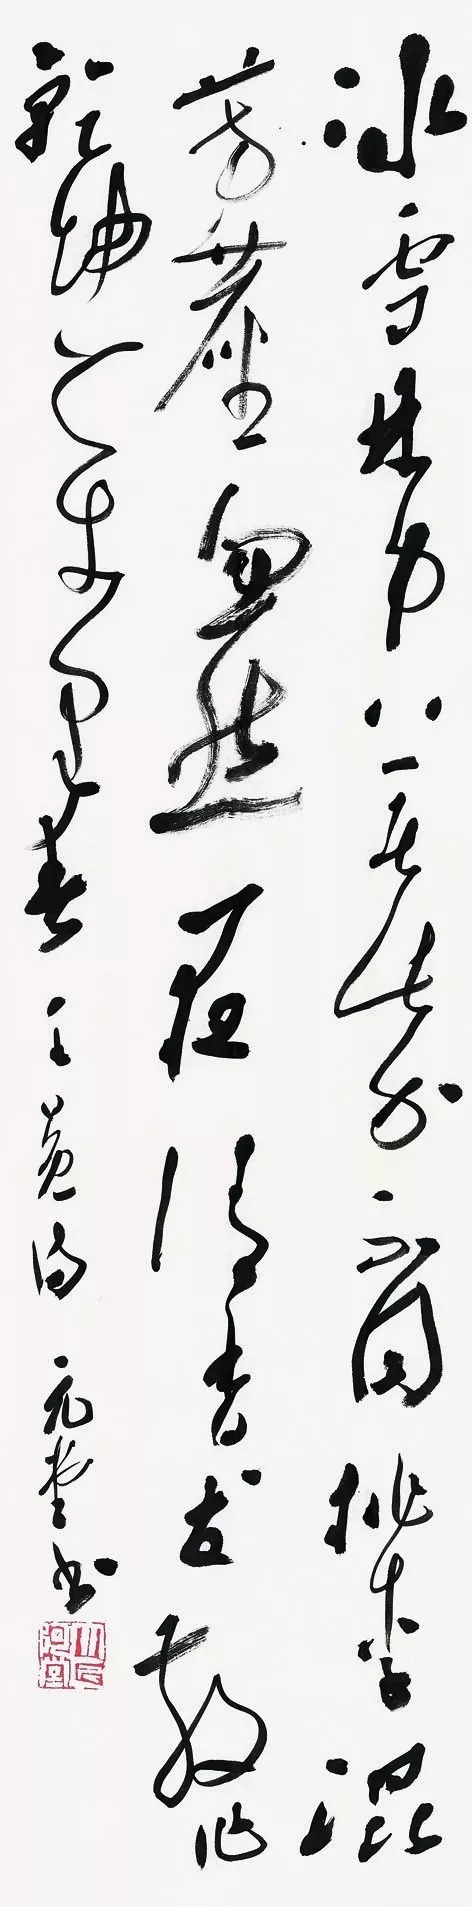 冰雪林中著此身不同桃李混
芳塵忽然一夜清香發散作
乾坤萬里春 王冕詩 元堂書